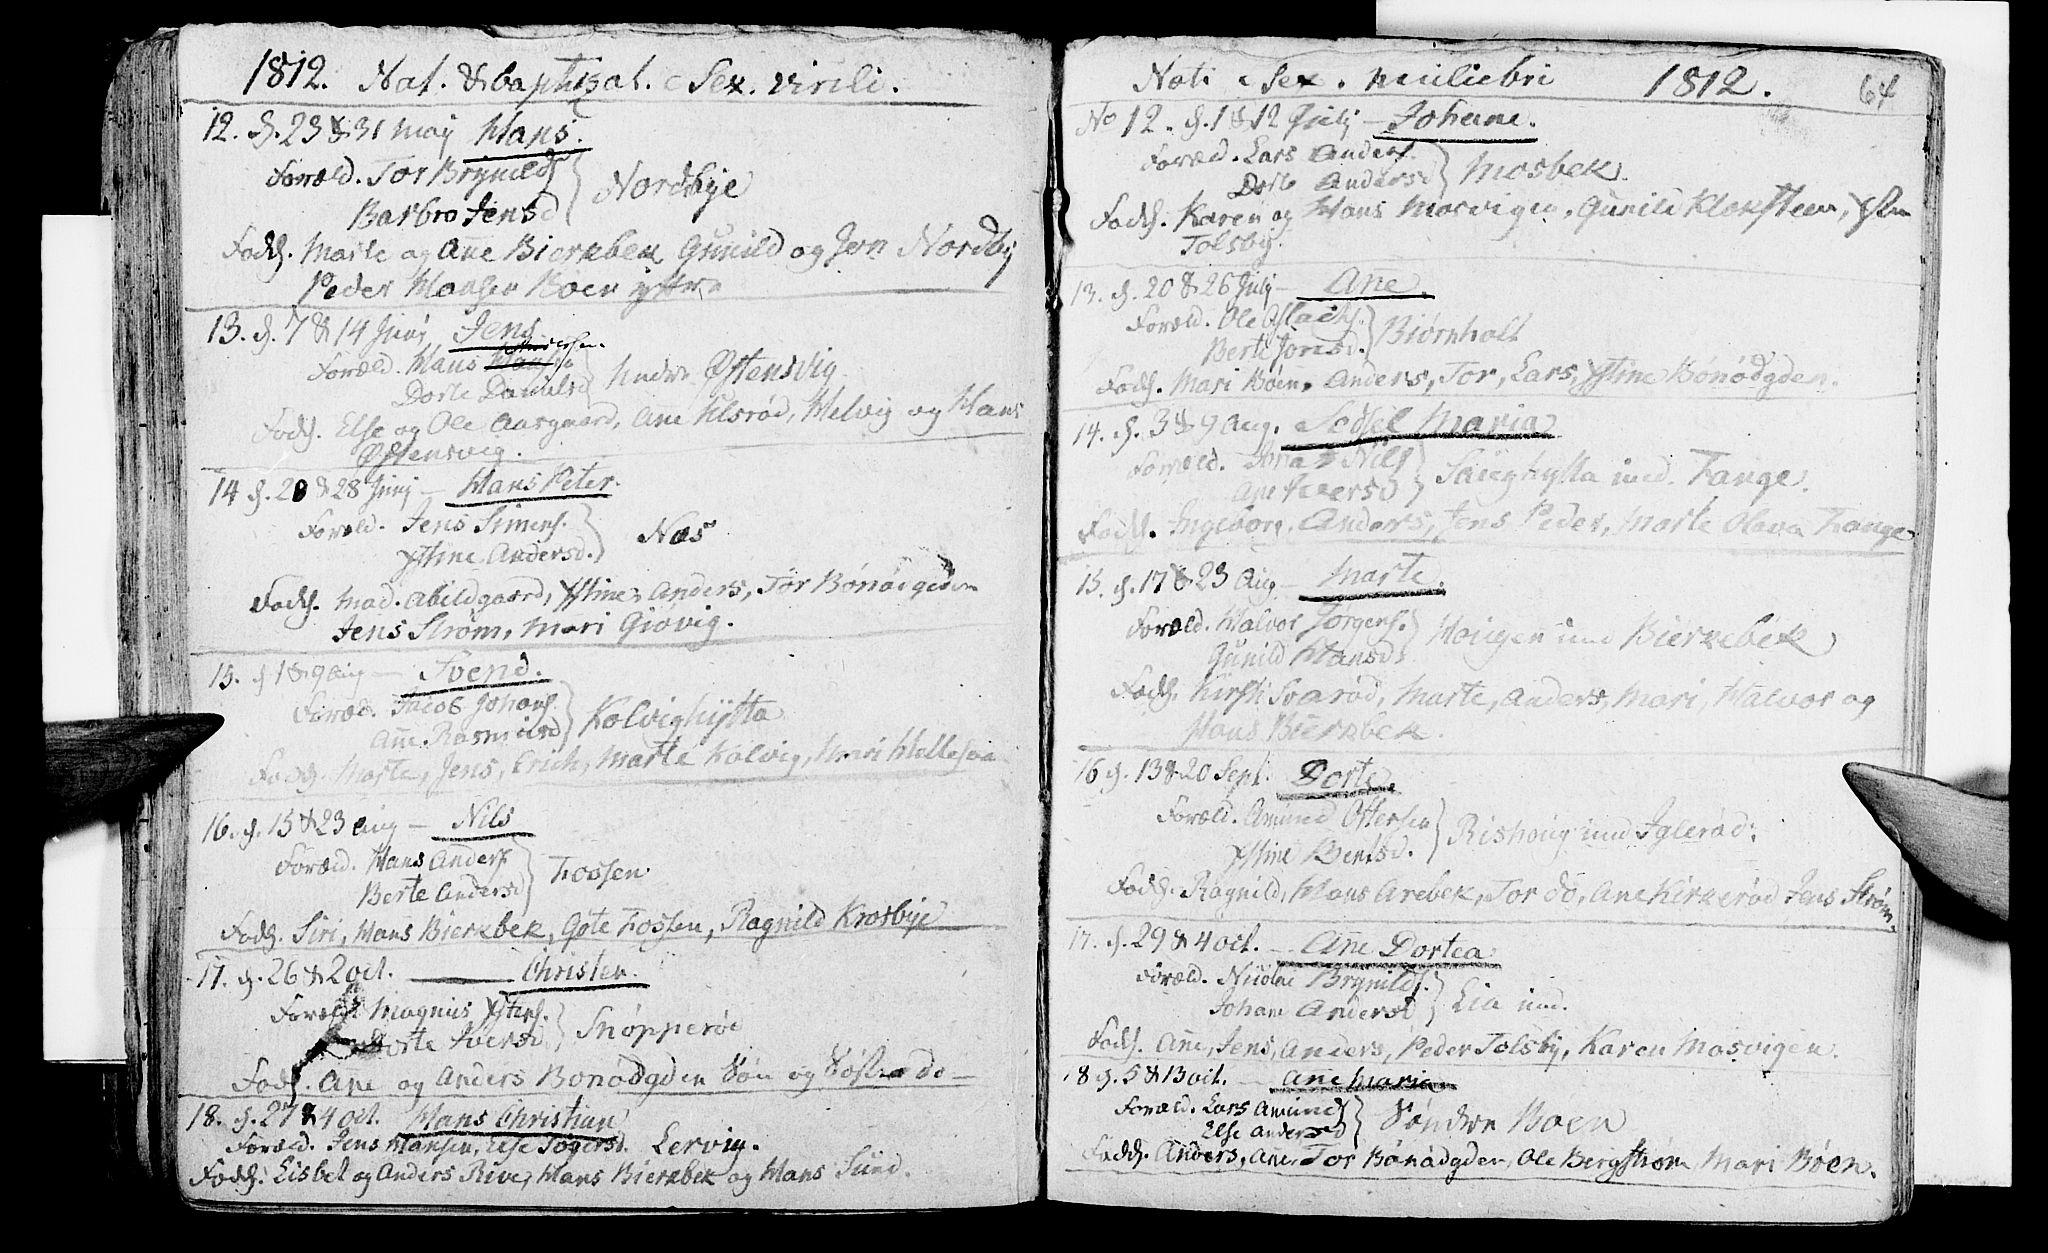 1812. Nat. & baptizat. Sex. virili.
12. d. 23 & 31 May Hans.
Foræld. Tor Brynilds
Barbro Jensd } Nordbye
Fadd. Marte og Ane Bierkebek, Gunild og Jern Nordby
Peder Hansen Boen yttre
13. d. 7 & 14 Junj Jens
Foræld. Hans Andersen.
Dorte Danielsd } Nedre Østensvig
Fadd. Else og Ole Aasgaard, Ane Ulsrød, Helvig og Hans
Østensvig.
14 d. 20 & 28 Junj — Hans Peter.
Foræld. Jens Simens.
Xstine Andersd. } Næs
Fadd. Mad. Abildgaard, Xstine, Anders, Tor Bønødgden
Jens Strøm, Mari Giøvig.
15. d 1 & 9 Aug — Svend.
Foræld. Jacob Johans.
Ane Rasmusd } Kolvighytta
Fadd. Marte, Jens, Erich, Marte Kolvig, Mari
16. d. 15 & 23 Aug — Nils
Foræld. Hans Anders
Berte Andersd } Fossen
Fadd. Siri, Hans Bierkebek, Gøte Fossen, Ragnild Krosbye
17. d. 26 & 2 oct. — Christen.
Foræld. Magnus Xstens.
Dorte Iversd } Snøpperød
Fadd. Ane og Anders Bonødgden Søn og Søster do —
18. d. 27 & 4 oct. Hans Christian
Foræld. Jens Hansen, Else Togersd. Lervig.
Fadd. Lisbet og Anders Rive, Hans Bierkebek og Hans Sund.
Nati Sex. muliebri 1812. 64
No 12. d. 1 & 12 Julj — Johane.
Foræld. Lars Anders.
Dorte Andersd } Mosbek.
Fadd. Karen og Hans Mosvigen, Gunild Kloksteen,
Tolsby.
13. d. 20 & 26 Julj — Ane.
Foræld. Ole Oslachs.
Berte Joensd. } Biørnholt
Fadd. Mari Bøen, Anders, Tor, Lars, Xstine Bønødgden.
14. d. 3 & 9 Aug. Sidsel Maria
Foræld. Jonas Nils
Ane Iversd } Saughytta und. Tange.
Fadd. Ingeborg, Anders, Jens Peder, Marte Olava Tange
15. d. 17 & 23 Aug — Marte.
Foræld. Halvor Jørgens.
Gunild Hansd. } Hougen und Bierkebek
Fadd. Kirsti Svarød, Marte, Anders, Mari, Halvor og
Hans Bierkebek.
16 d. 13 & 20 Sept. Dorte
Foræld. Amund Ottersen
Xstine Bentsd. } Rishoug und Iglerød.
Fadd. Ragnild, Hans Arebek, Tor do, Ane Kirkerød Jens Strøm.
17. d. 29 & 4 oct. — Ane Dortea
Foræld. Nicolai Brynilds.
Johane Andersd } Lia und.
Fadd. Ane, Jens, Anders, Peder Tolsby, Karen Mosvigen.
18 d. 5 & 13 oct. — Ane Maria
Foræld. Lars Amunds
Else Andersd } Søndre Boen
Fadd. Anders, Ane, Tor Bønødgden, Ole Bergstrøm, Mari Bøen.